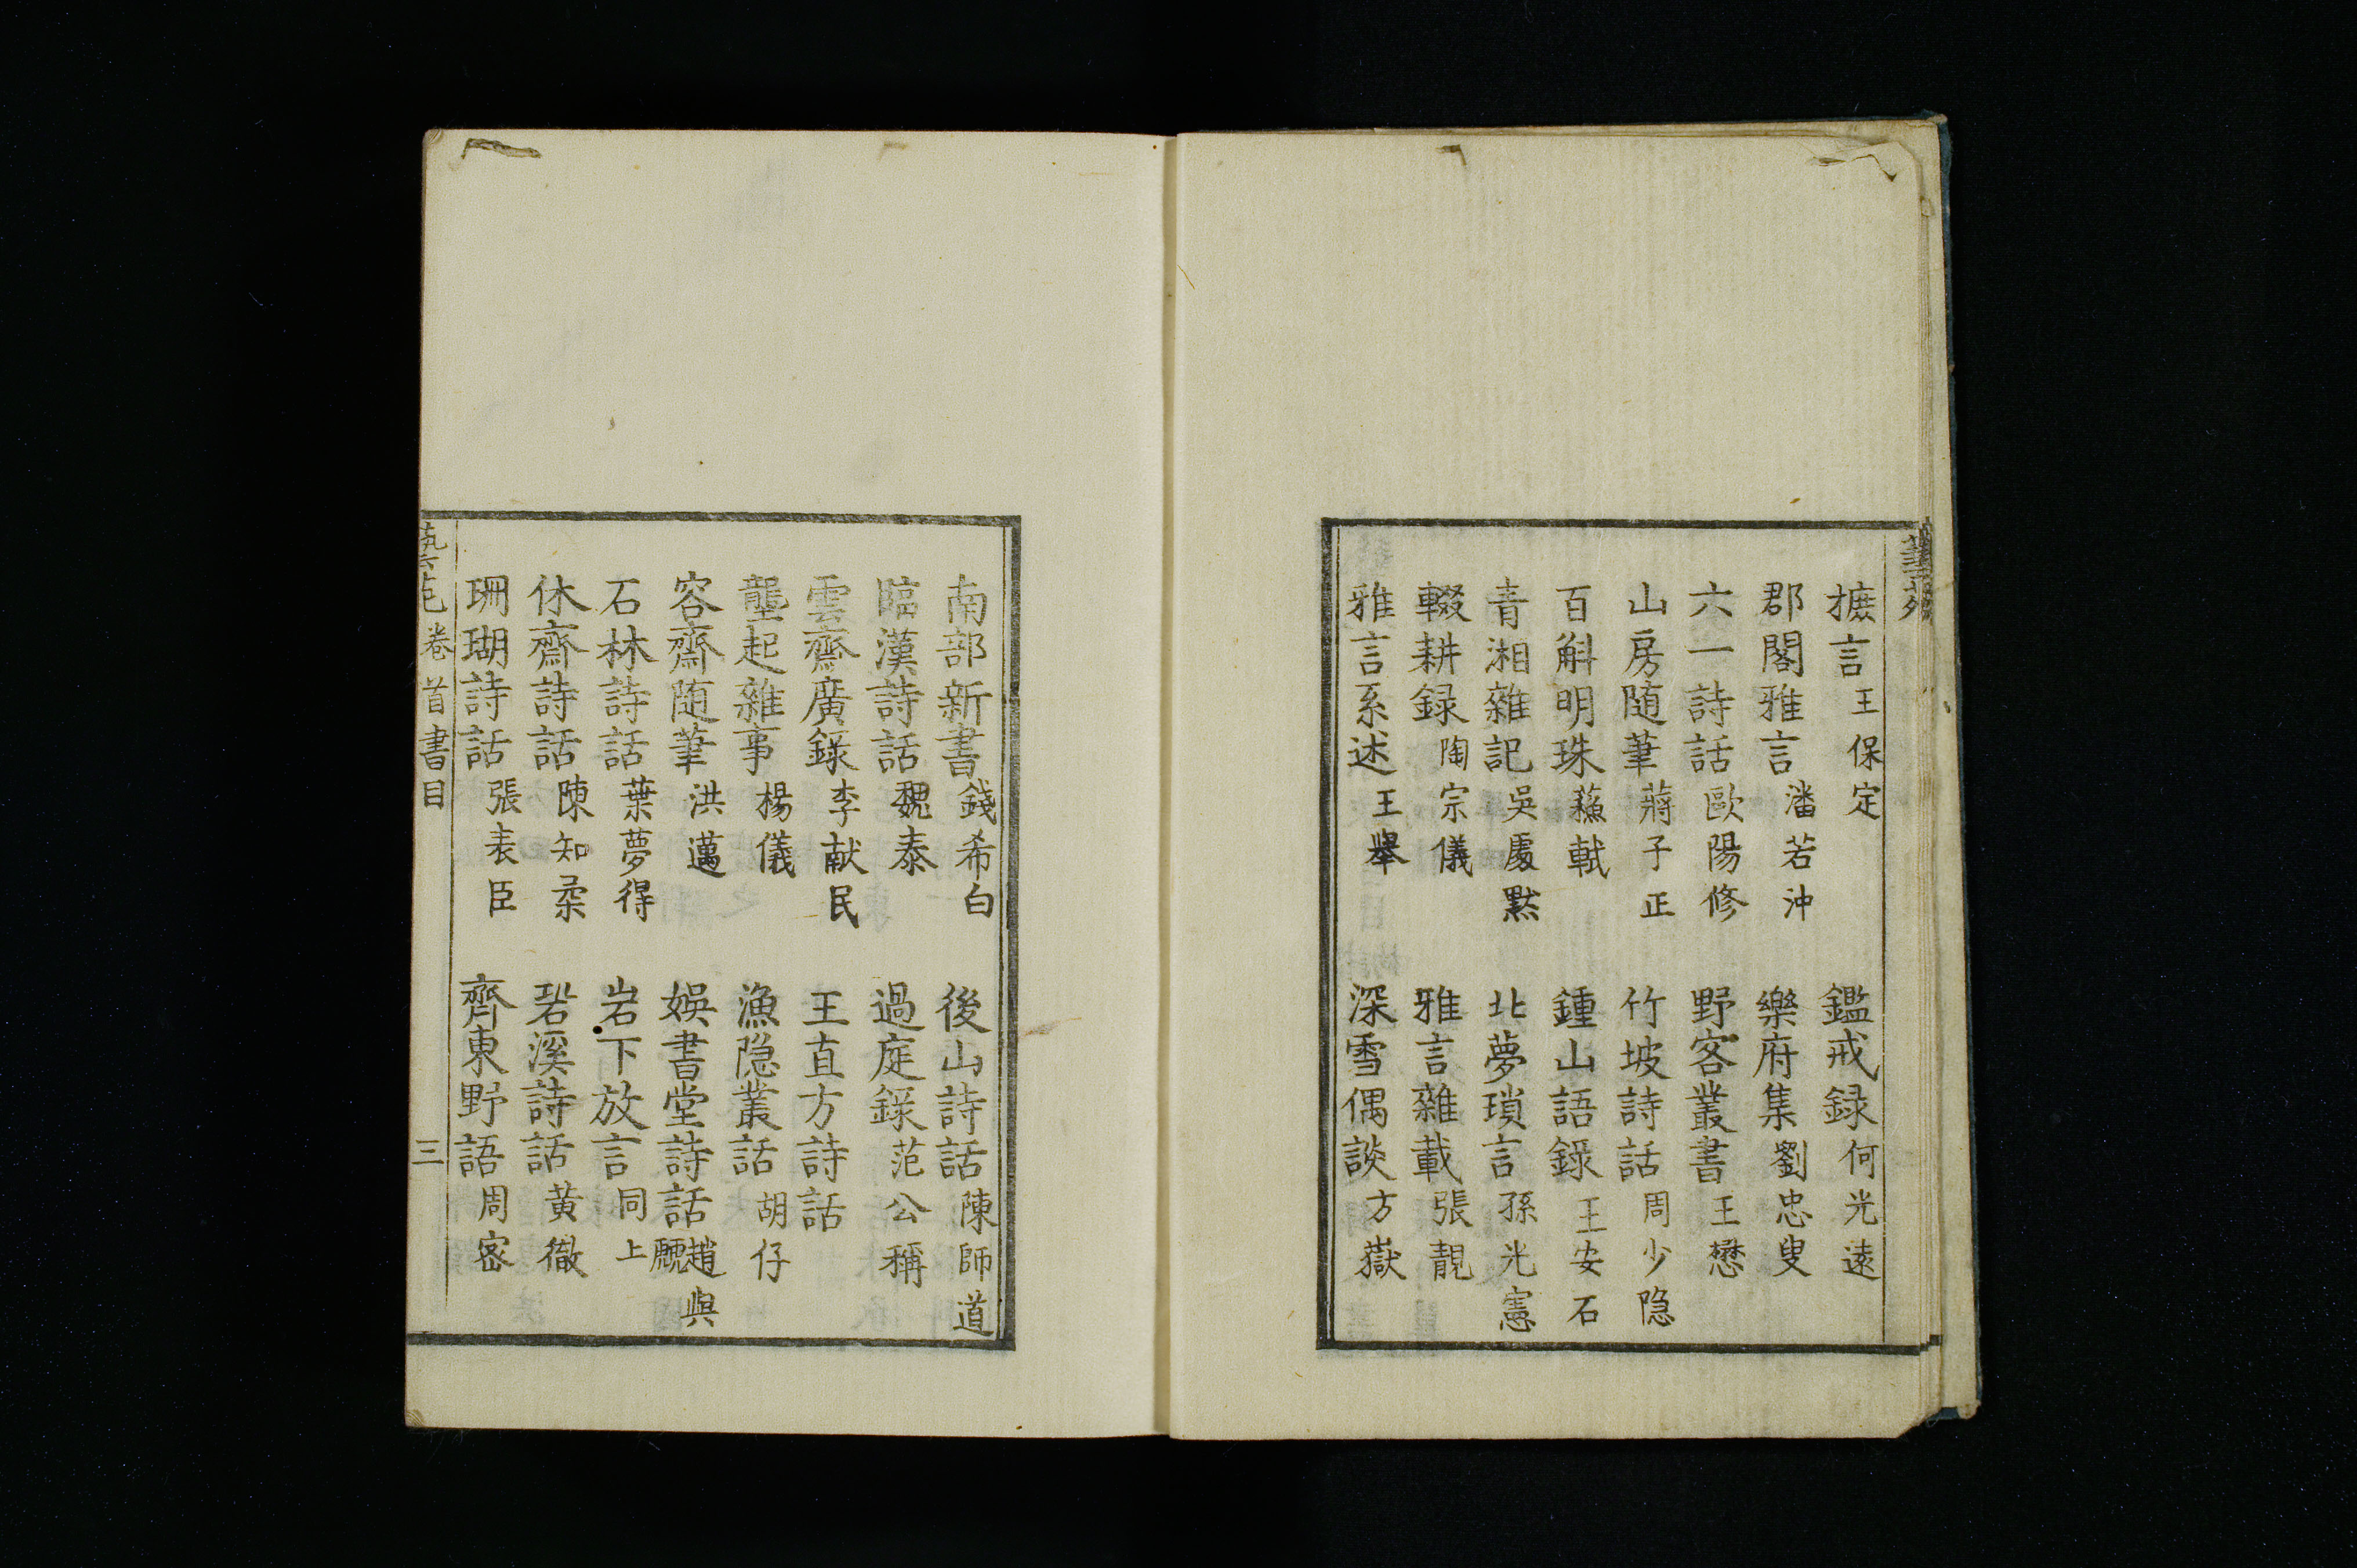 摭言王保定　鑑戒録何光遠
郡閣雅言潘若沖　樂府集劉忠叟
六一詩話歐陽修　野客叢書王懋
山房随筆蔣子正　竹坡詩話周少隐
百斛明珠蘓軾　鍾山語錄王安石
青湘雜記吳處黙　北夢瑣言孫光憲
輟耕録陶宗儀　雅言雜載張靚
雅言系述王舉　深雪偶談方嶽
南部新書錢希白　後山詩話陳師道
臨漢詩話魏泰　過庭錄范公稱
雲齋廣錄李献民　王直方詩話
壟起雜事楊儀　漁隐叢話胡仔
容齋随筆洪邁　娛書堂詩話趙與虤
石林詩話葉夢得　岩下放言同上
休齋詩話陳知柔　䂬溪詩話黄徹
珊瑚詩話張表臣　齊東野語周宻
藝苑卷首書目　三